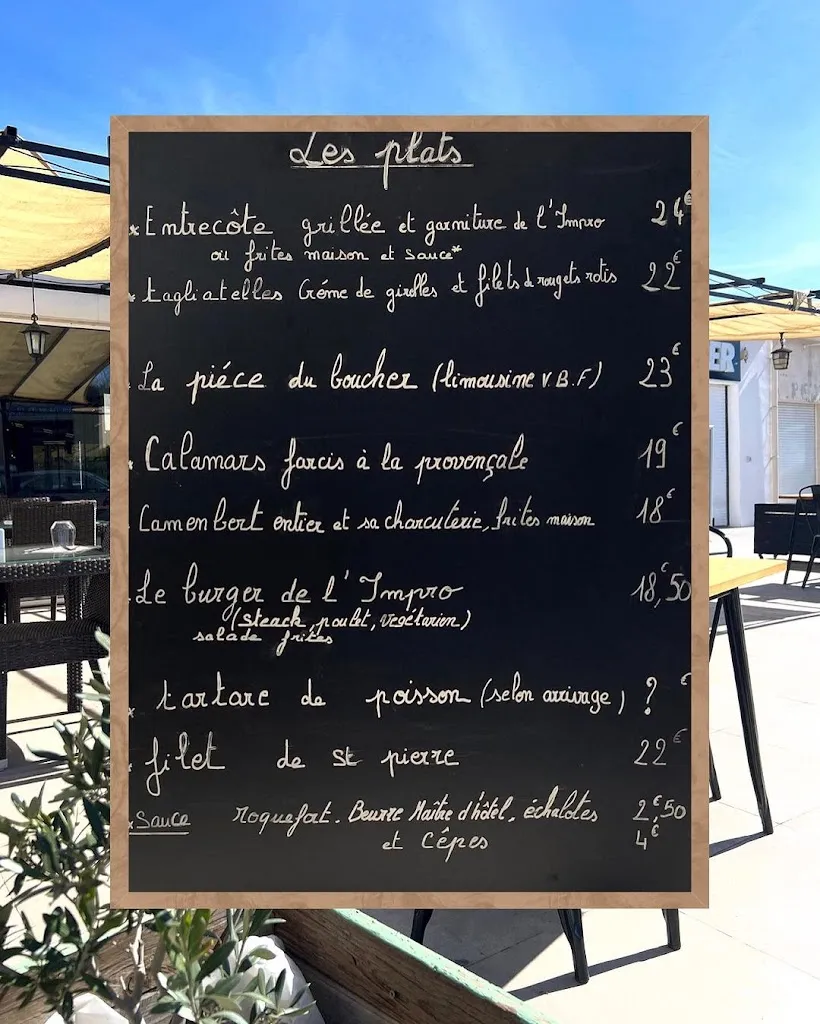 Les plats
* Entrecôte grillée et garniture de l'Impro 24€
ou frites maison et sauce*
* tagliatelles Créme de girolles et filets de rougets rotis 22€
La piéce du boucher (limousine V.B.F) 23€
Calamars farcis à la provençale 19€
Camembert entier et sa charcuterie, frites maison 18€
Le burger de l'Impro 18€,50
(steack, poulet, vegétarien)
salade frites
* tartare de poisson (selon arrivage) ? €
filet de st pierre 22€
* Sauce roquefort. Beurre Maître d'hôtel, échalotes 2€,50
et Cêpes 4€
ER